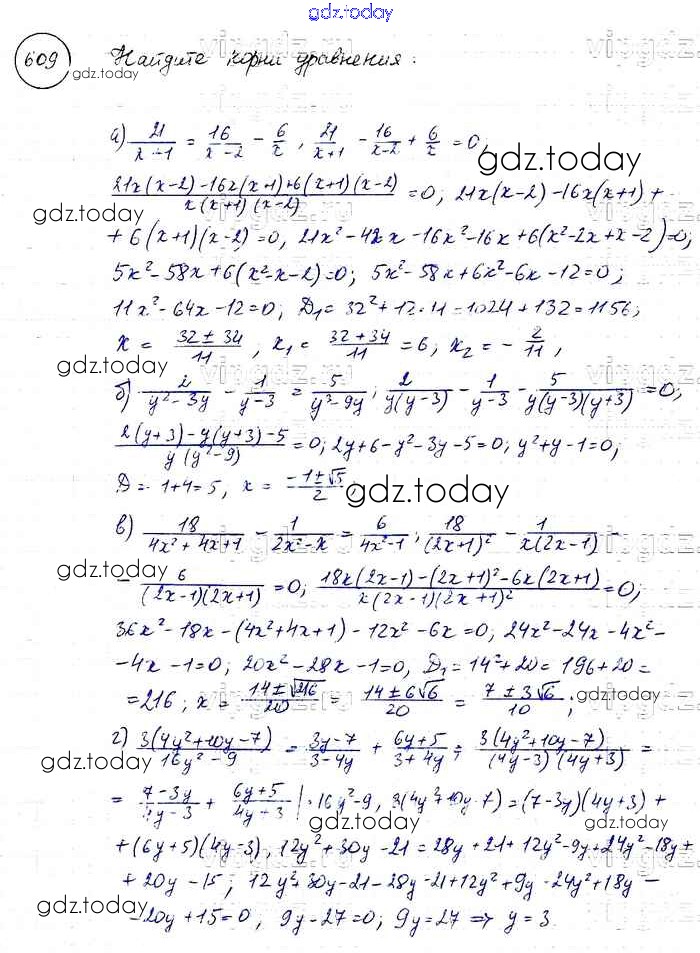 gdz.today
609 Найдите корни уравнения:
gdz.today
а) 21/(x+1) = 16/(x-2) - 6/x, 21/(x+1) - 16/(x-2) + 6/x = 0,
gdz.today
(21x(x-2)-16x(x+1)+6(x+1)(x-2))/(x(x+1)(x-2)) = 0; 21x(x-2)-16x(x+1)+
gdz.today
+6(x+1)(x-2)=0, 21x²-42x-16x²-16x+6(x²-2x+x-2)=0;
5x²-58x+6(x²-x-2)=0; 5x²-58x+6x²-6x-12=0;
11x²-64x-12=0; D₁=32²+12·11=1024+132=1156;
x = (32±34)/11, x₁ = (32+34)/11 = 6, x₂ = -2/11,
gdz.today
б) 2/(y²-3y) - 1/(y-3) = 5/(y³-9y); 2/(y(y-3)) - 1/(y-3) - 5/(y(y-3)(y+3)) = 0,
(2(y+3)-y(y+3)-5)/(y(y²-9)) = 0; 2y+6-y²-3y-5=0; y²+y-1=0;
D = 1+4=5, x = (-1±√5)/2,
gdz.today
в) 18/(4x²+4x+1) - 1/(2x²-x) = 6/(4x²-1); 18/(2x+1)² - 1/(x(2x-1)) -
gdz.today
- 6/((2x-1)(2x+1)) = 0; (18x(2x-1)-(2x+1)²-6x(2x+1))/(x(2x-1)(2x+1)²) = 0;
36x²-18x-(4x²+4x+1)-12x²-6x=0; 24x²-24x-4x²-
-4x-1=0; 20x²-28x-1=0, D₁=14²+20=196+20=
=216; x = (14±√216)/20 = (14±6√6)/20 = (7±3√6)/10;
gdz.today
г) 3(4y²+10y-7)/(16y²-9) = (3y-7)/(3-4y) + (6y+5)/(3+4y); 3(4y²+10y-7)/((4y-3)(4y+3)) =
gdz.today
= (7-3y)/(4y-3) + (6y+5)/(4y+3) |·16y²-9, 3(4y²+10y-7)=(7-3y)(4y+3)+
gdz.today
+(6y+5)(4y-3), 12y²+30y-21=28y+21+12y²-9y+24y²-18y+
+20y-15; 12y²+30y-21-28y-21+12y²+9y-24y²+18y-
gdz.today
-20y+15=0, 9y-27=0; 9y=27 ⇒ y=3.